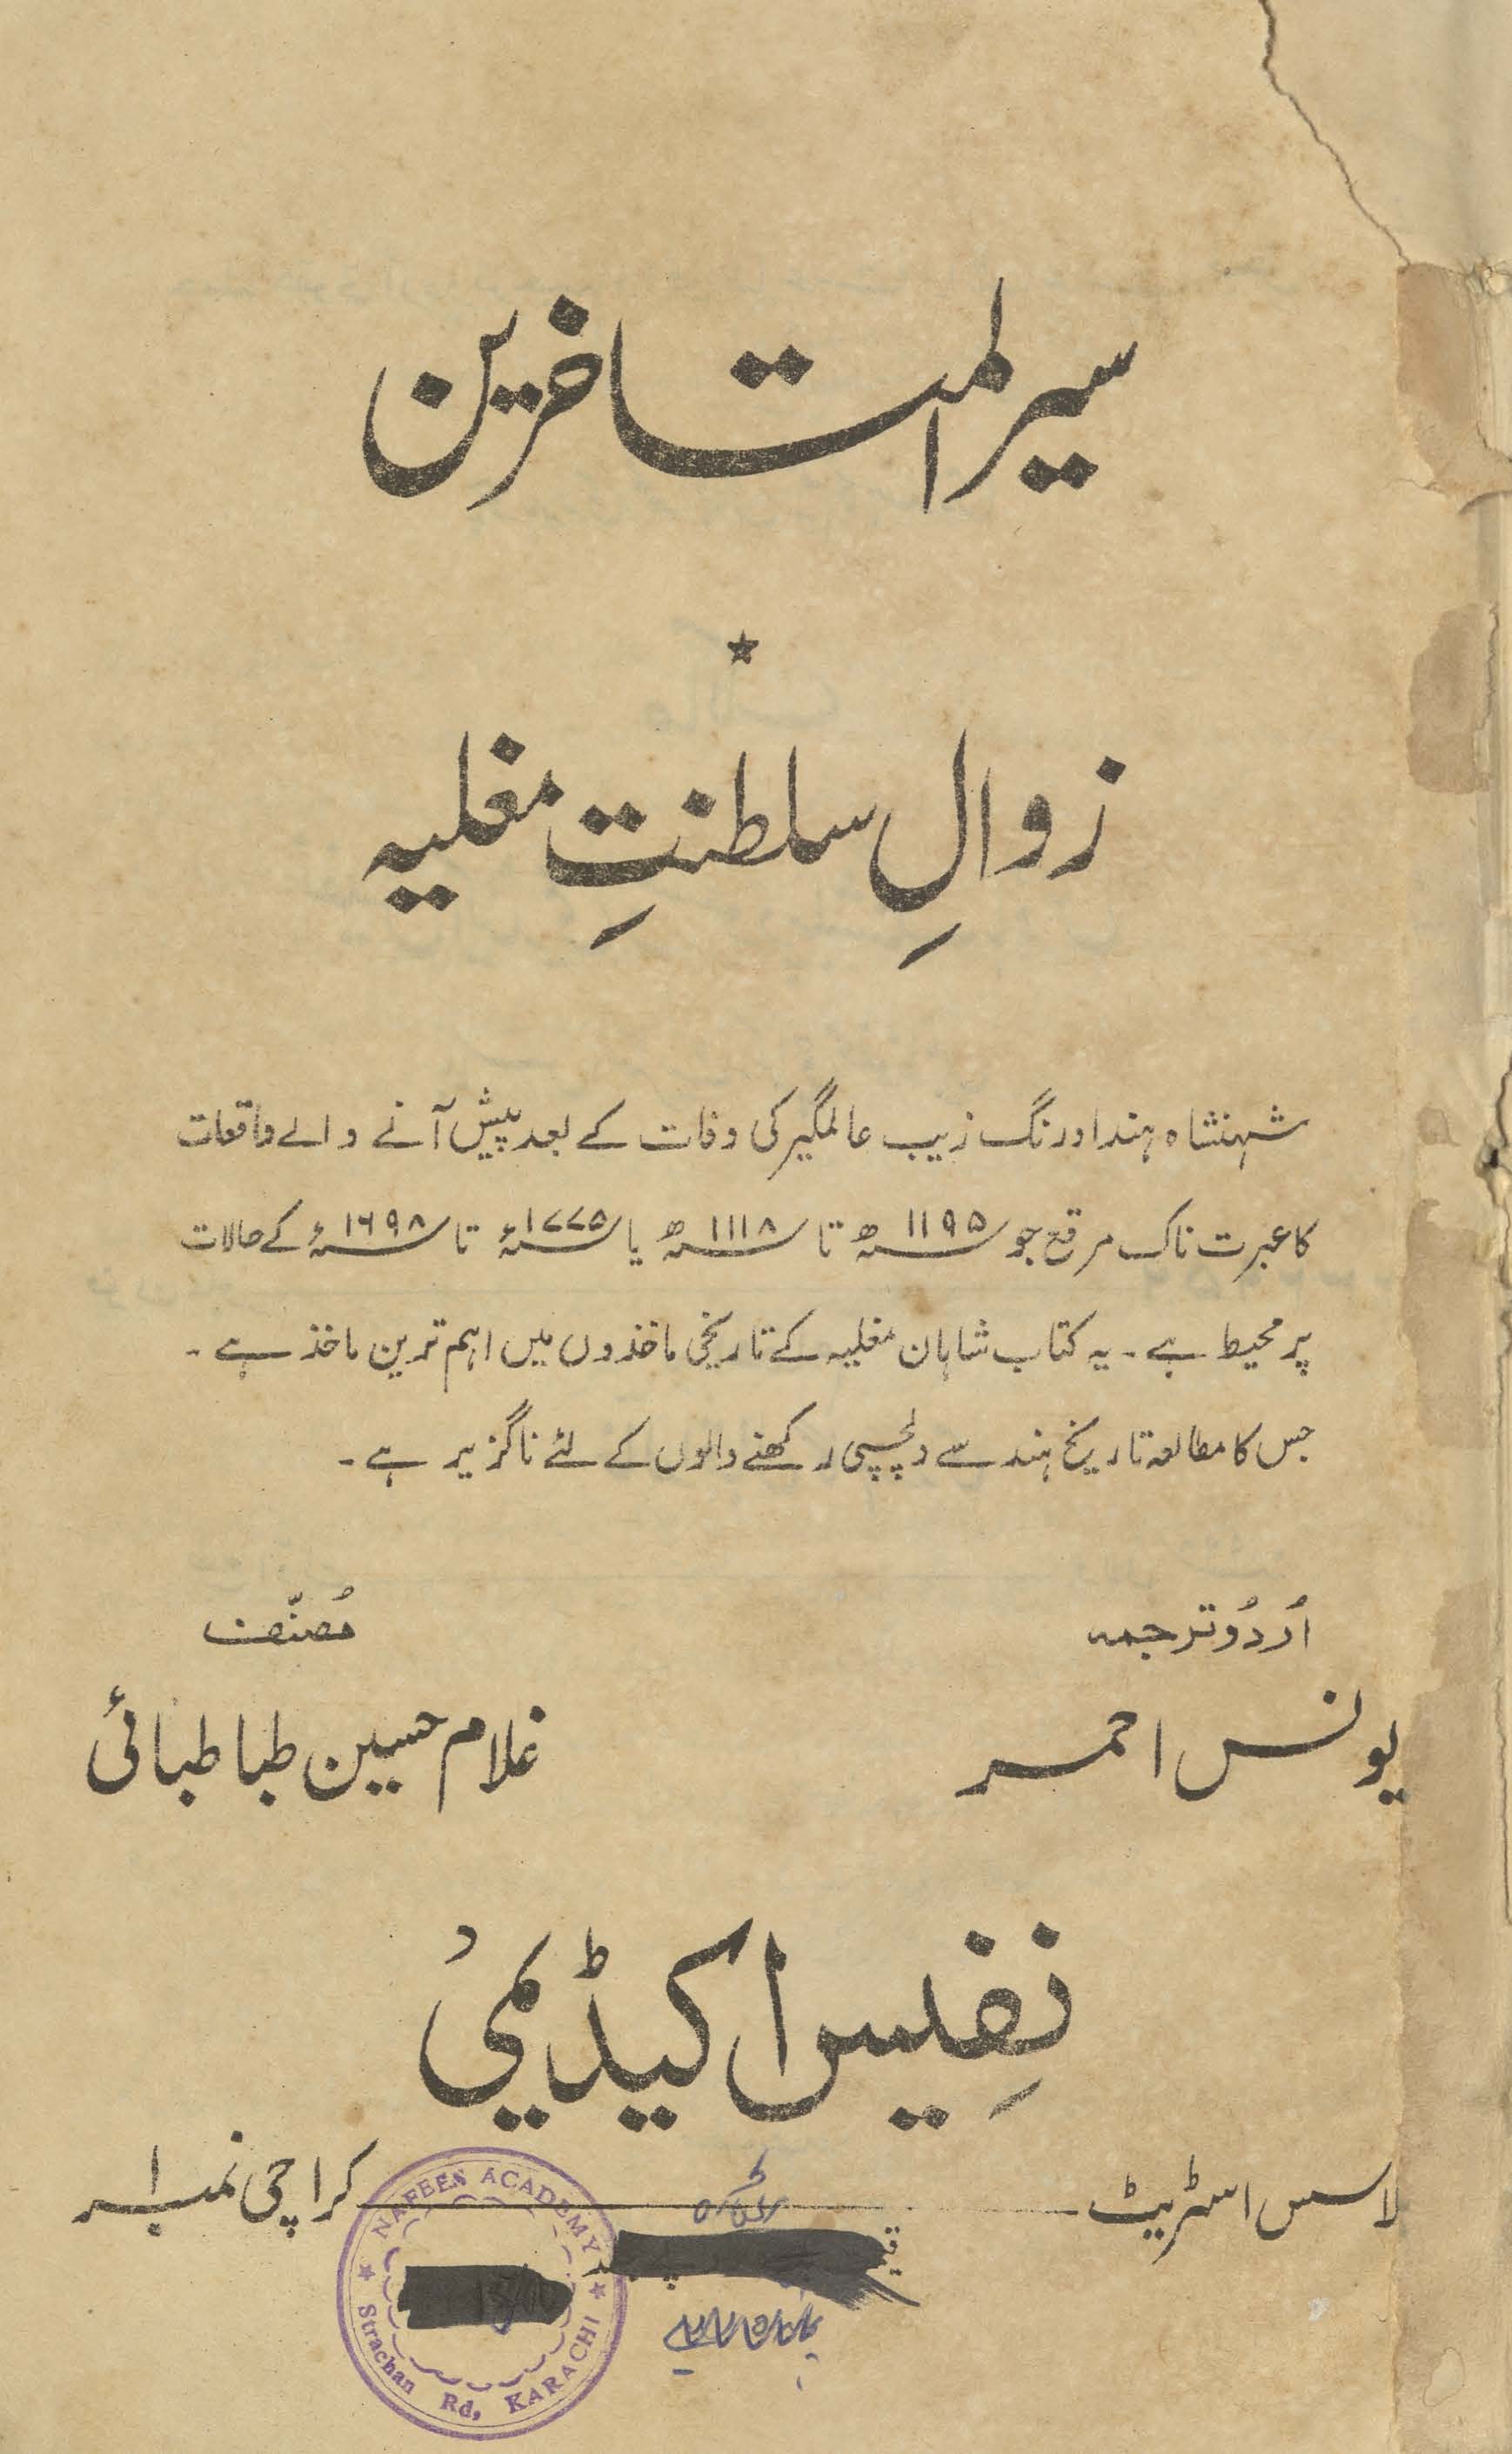 سیر المتاخرین
زوالِ سلطنتِ مغلیہ
شہنشاہ ہند اورنگ زیب عالمگیر کی وفات کے بعد پیش آنے والے واقعات
کا عبرت ناک مرقع جو ۱۱۹۵ھ تا ۱۱۱۸ھ یا ۱۷۷۵ء تا ۱۶۹۸ء کے حالات
پر محیط ہے۔ یہ کتاب شاہان مغلیہ کے تاریخی ماخذوں میں اہم ترین ماخذ ہے۔
جس کا مطالعہ تاریخ ہند سے دلچسپی رکھنے والوں کے لئے ناگزیر ہے۔
اُردُو ترجمہ
یونس احمر
مُصنّف
غلام حسین طباطبائی
نفِیس اکیڈیمیْ
لاسس اسٹریٹ
کراچی نمبر ۱
NAFEES ACADEMY
Strachan Rd, KARACHI